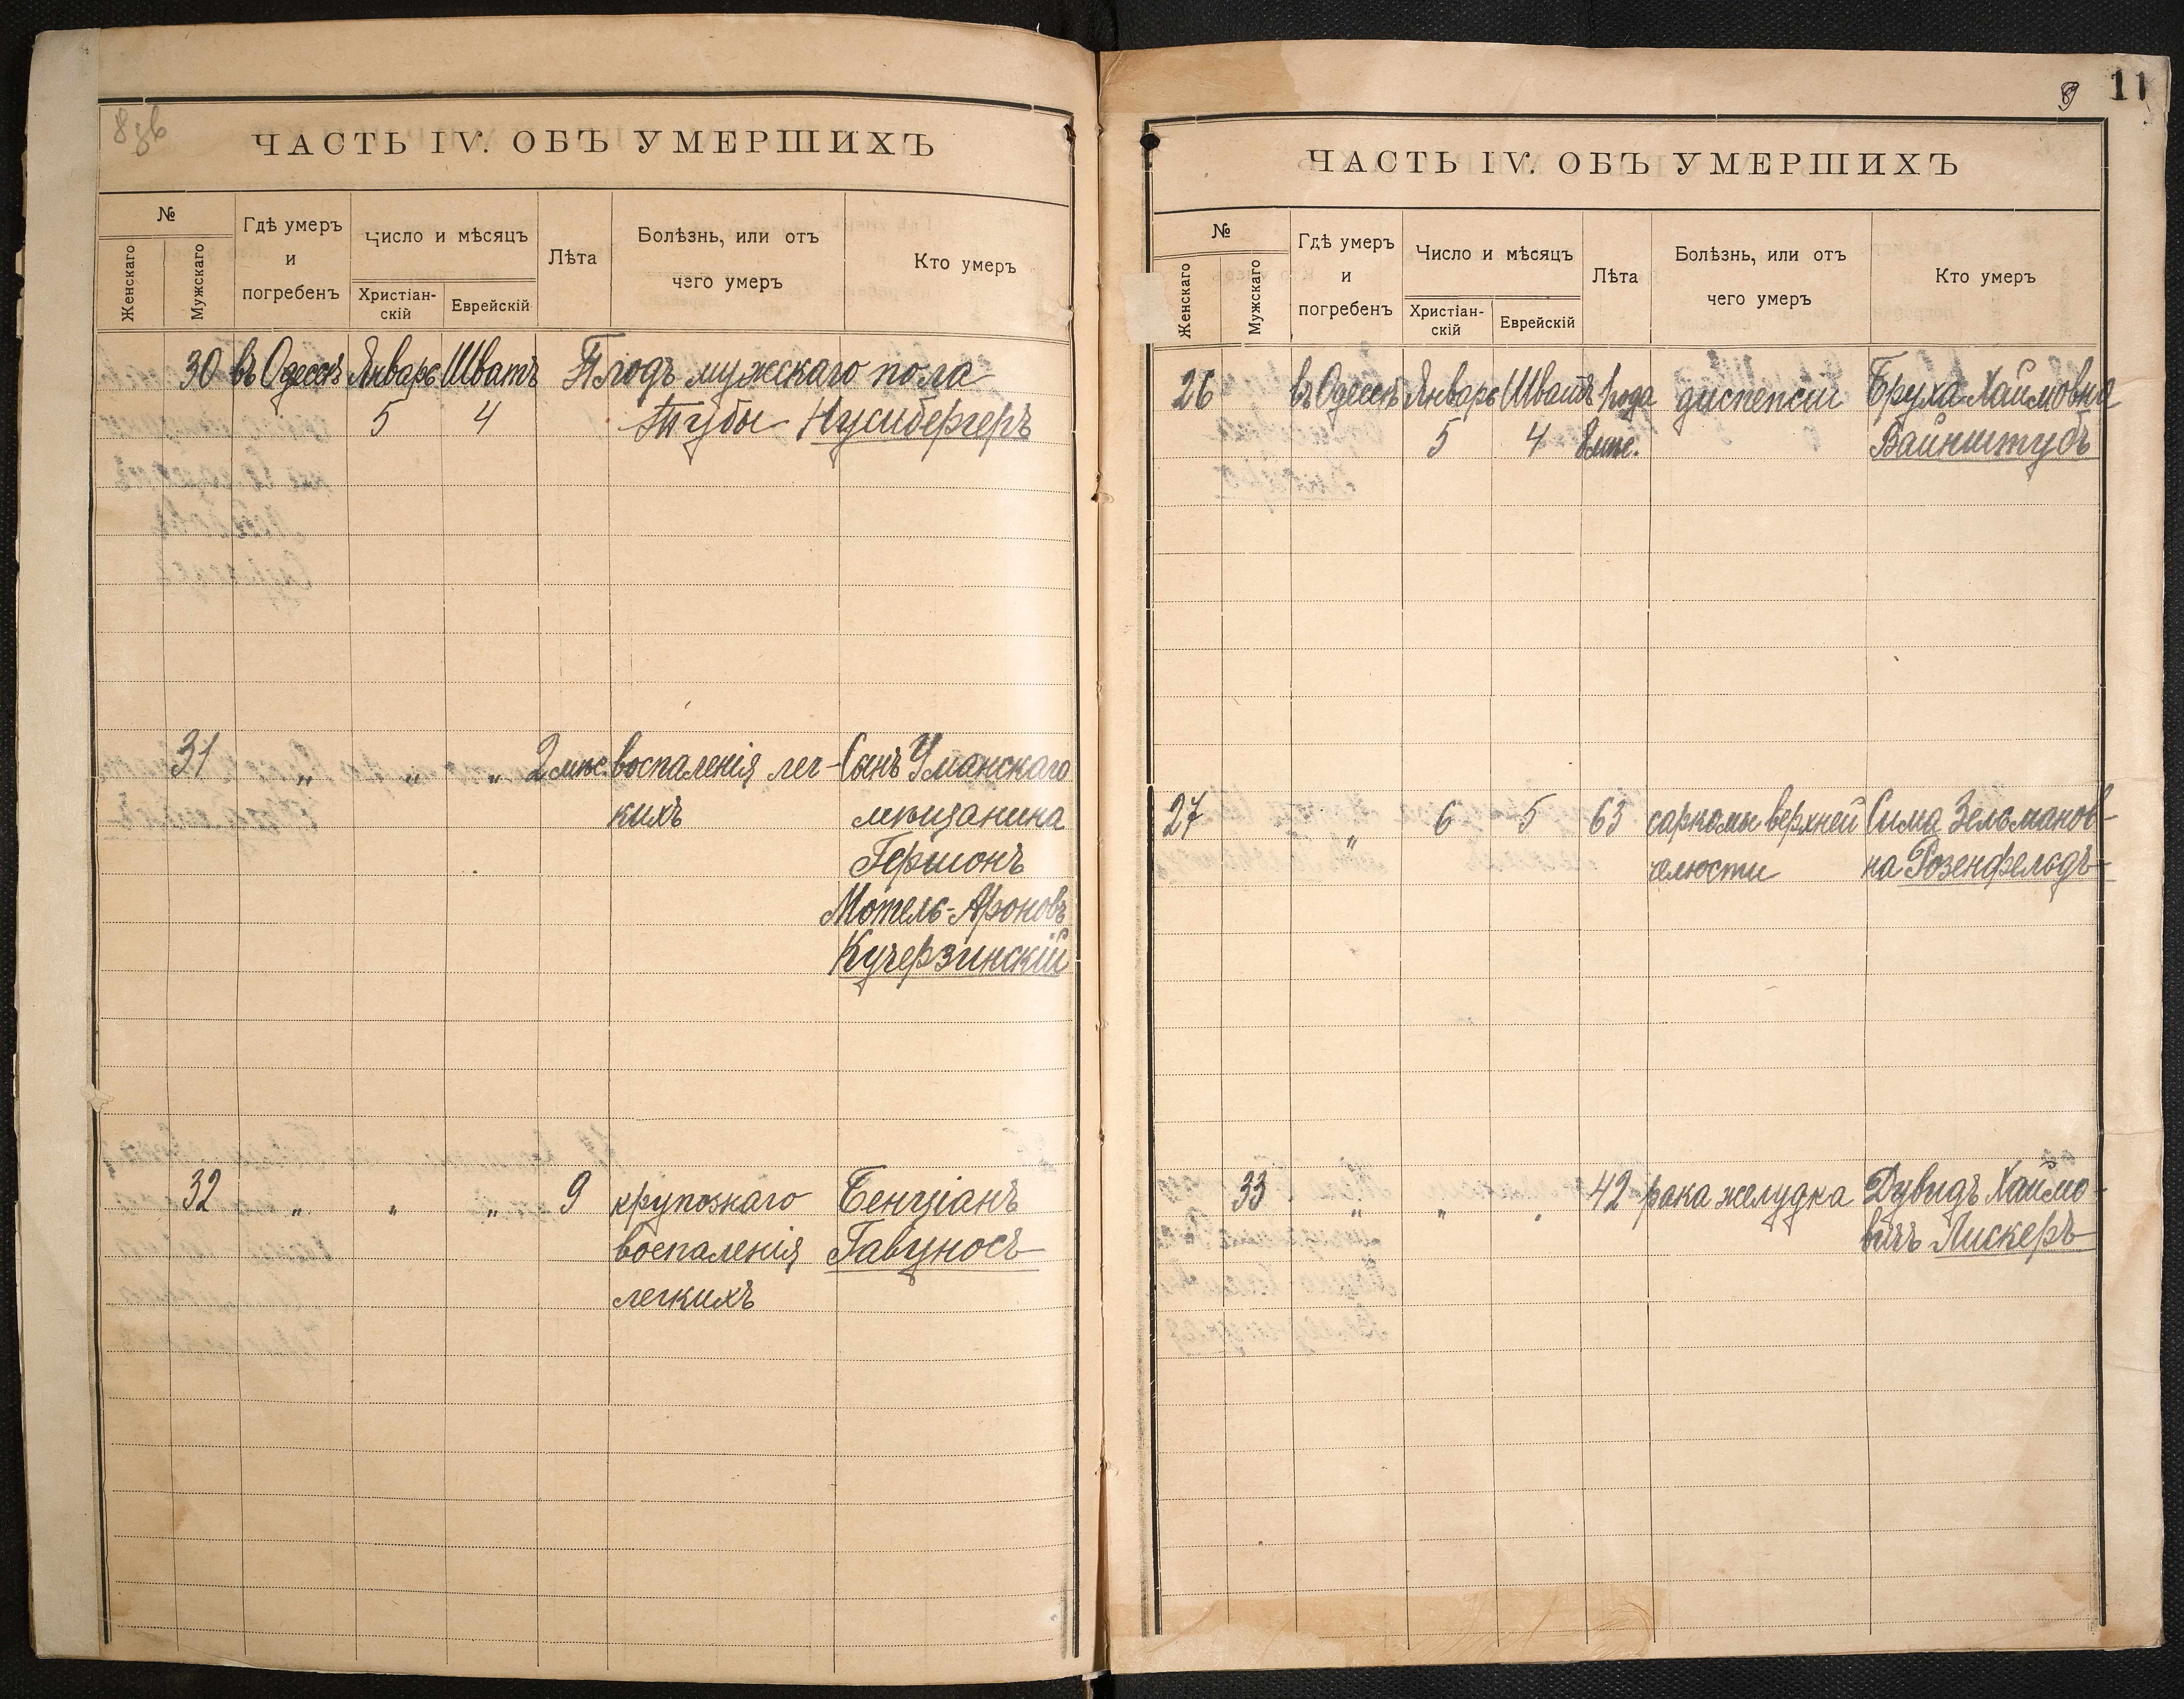 ЧАСТЬ IV. ОБЪ УМЕРШИХЪ
№
Женскаго
Мужскаго
Гдѣ умеръ
и
погребенъ
Число и мѣсяцъ
Христіан-
скій
Еврейскій
Лѣта
Болѣзнь, или отъ
чего умеръ
Кто умеръ
30 въ Одессѣ Январь Шватъ Плодъ мужскаго пола
5 4 Тубы Нусибергеръ
31 " " " 2 мѣс. воспаленія лег- Сынъ Уманскаго
кихъ мѣщанина
Гершонъ
Мотель-Ароновъ
Кучерзинскій
32 " " " 9 крупознаго Бенціанъ
воспаленія Гавуносъ
легкихъ
9 11
ЧАСТЬ IV. ОБЪ УМЕРШИХЪ
№
Женскаго
Мужскаго
Гдѣ умеръ
и
погребенъ
Число и мѣсяцъ
Христіан-
скій
Еврейскій
Лѣта
Болѣзнь, или отъ
чего умеръ
Кто умеръ
26 въ Одессѣ Январь Шватъ 1 года диспепсіи Бруха Хаимовна
5 4 8 мѣс. Вайнштубъ
27 " 6 5 63 саркомы верхней Сима Зельманов-
челюсти на Розенфельдъ
33 " " " 42 рака желудка Дувидъ Хаимо-
вичъ Лискеръ